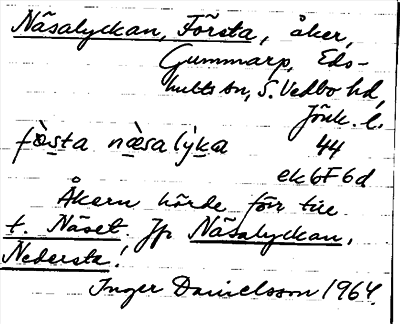 Näsalyckan, Första, åker,
Gummarp, Eds-
hults sn, S. Vedbo hd,
Jönk. l.
fȯ̀s̱ta nǽsalỳḵa 44
ek6F6d
Åkern hörde förr till
t. Näset. Jfr Näsalyckan,
Nedersta!
Inger Danielsson 1964.